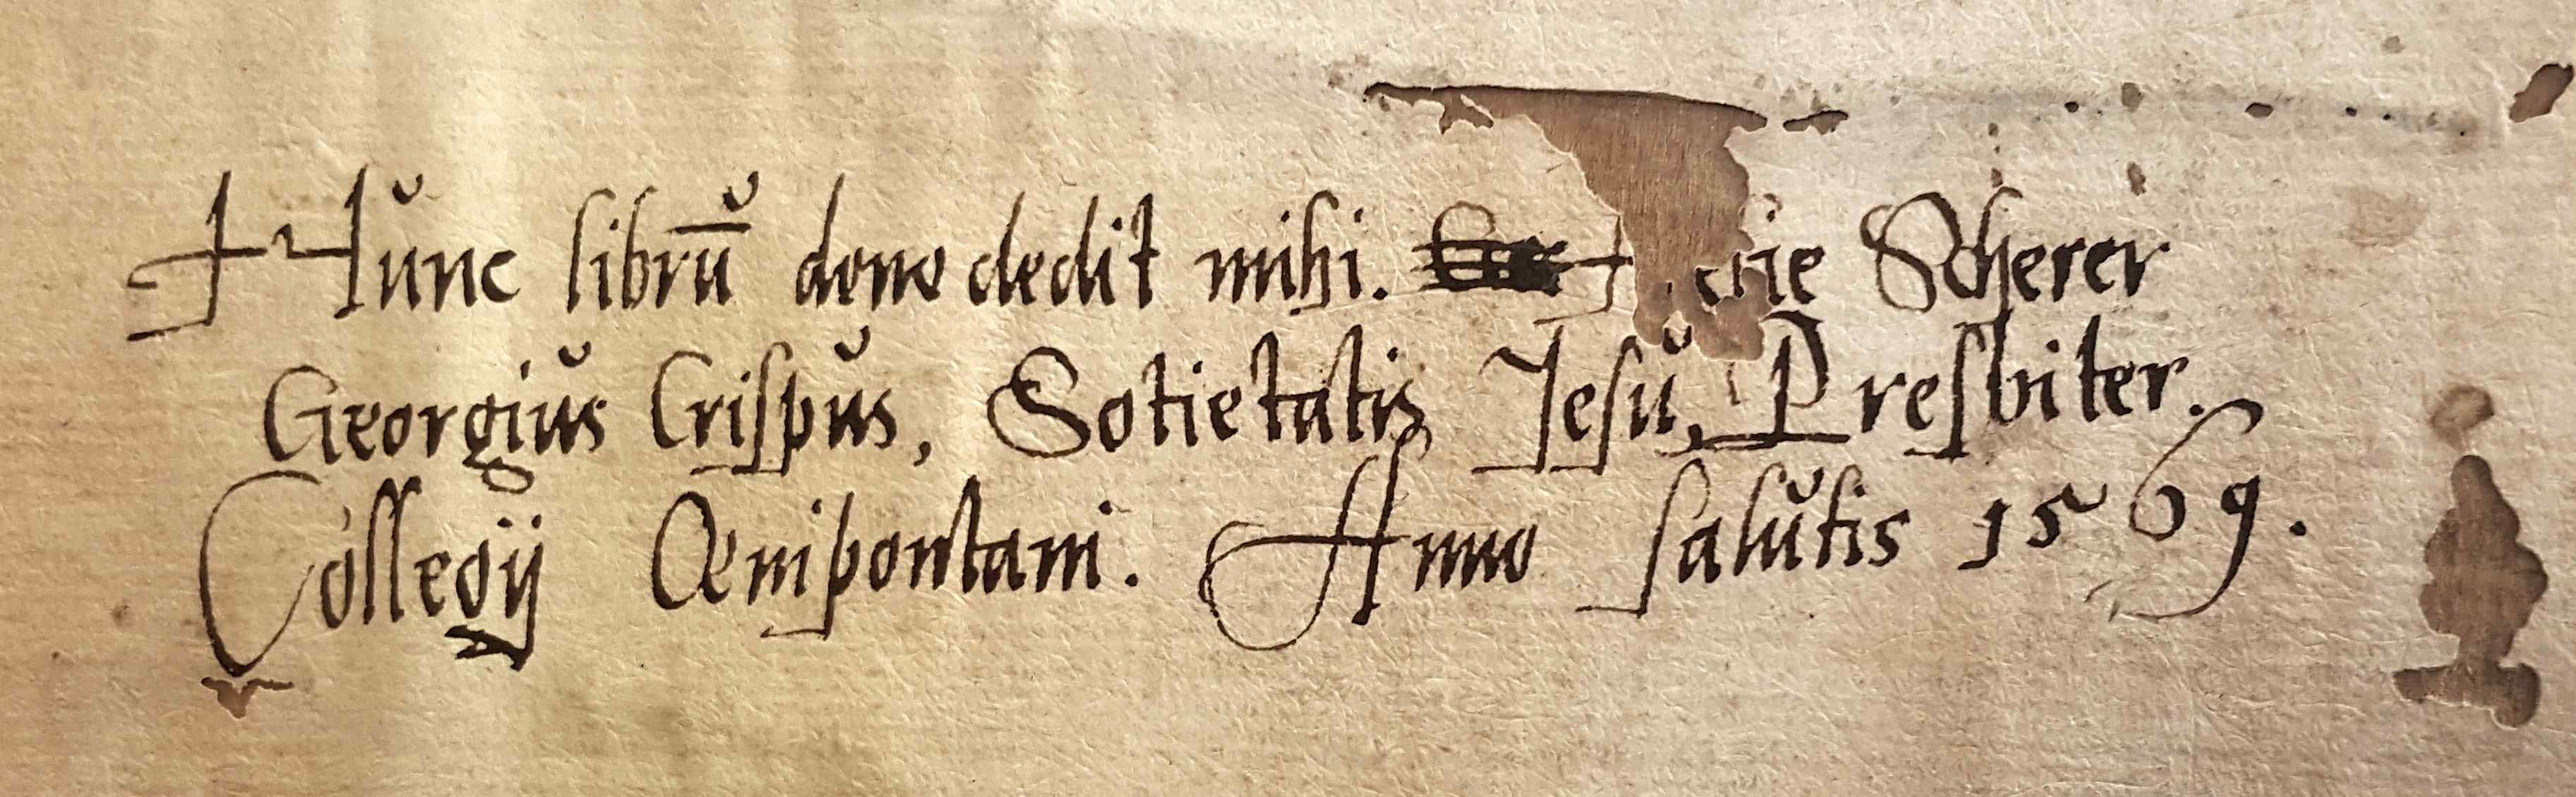 Hunc librū dono dedit mihi. Scherer
Georgius Crispus, Sotietatis Jesu, Presbiter.
Collegij Œnipontani. Anno salutis 1569.